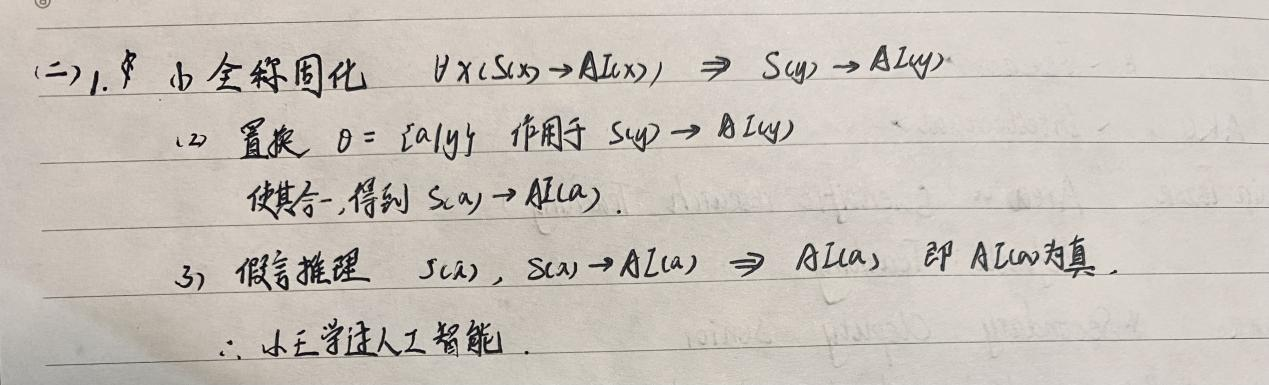 (二) 1. (1) 全称固化 ∀x(S(x)→AI(x)) ⇒ S(y)→AI(y)
(2) 置换 θ={a/y} 作用于 S(y)→AI(y)
使其合一,得到 S(a)→AI(a).
3) 假言推理 S(a), S(a)→AI(a) ⇒ AI(a) 即 AI(a)为真.
∴ 小王学过人工智能.